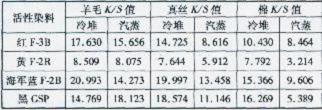 活性染料 羊毛 K/S 值 真丝 K/S 值 棉 K/S 值
冷堆 汽蒸 冷堆 汽蒸 冷堆 汽蒸
红 F-3B 17.630 15.656 14.725 8.616 10.430 8.464
黄 F-2R 8.509 8.075 7.644 5.912 7.792 3.214
海军蓝 F-2B 20.993 14.273 19.997 13.458 15.366 9.606
黑 GSP 14.769 18.123 18.574 11.146 16.269 5.389